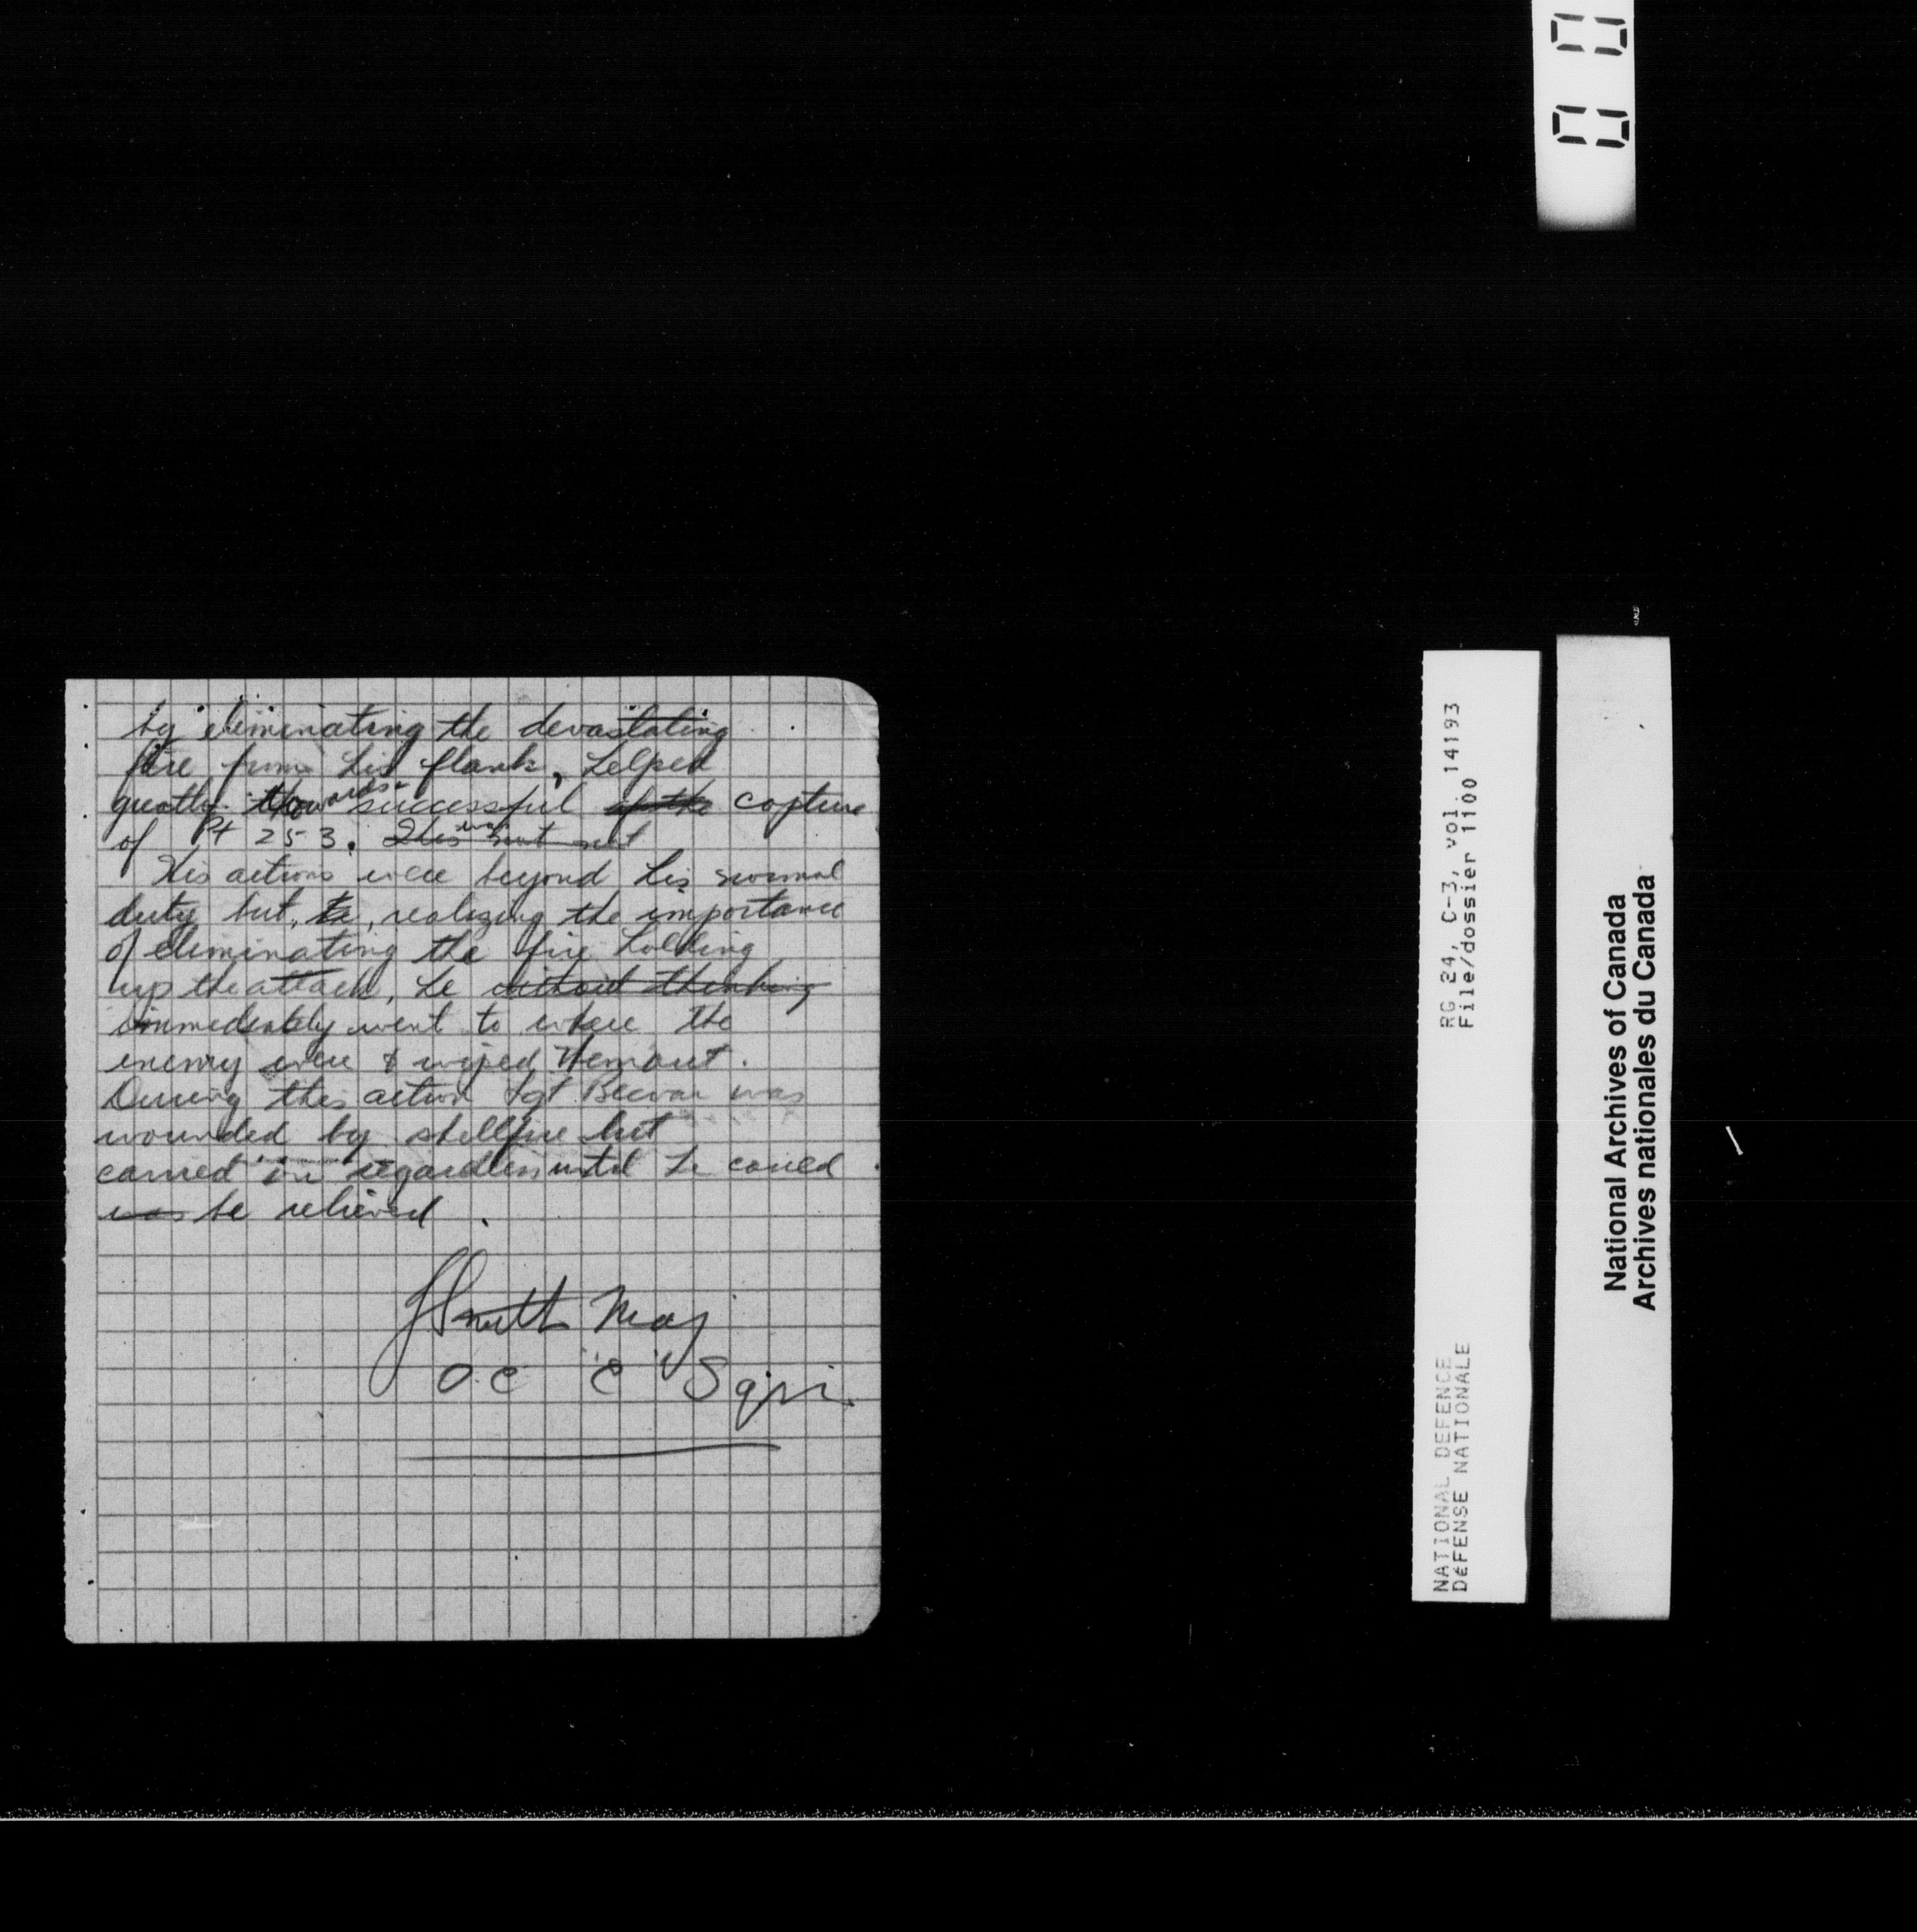 by eliminating the devastating
fire from his flank, helped
greatly towards successful of the capture
of Pt 253. This was not
His actions were beyond his normal
duty but, he, realizing the importance
of eliminating the fire holding
up the attack, he without thinking
immediately went to where the
enemy were & wiped them out.
During this action Sgt was
wounded by shellfire but
carried on regardless until he could
was be relieved.
Smith Maj
OC "C" Sqn.
RG 24, C-3, vol. 14193
File/dossier 1100
NATIONAL DEFENCE
DEFENSE NATIONALE
National Archives of Canada
Archives nationales du Canada